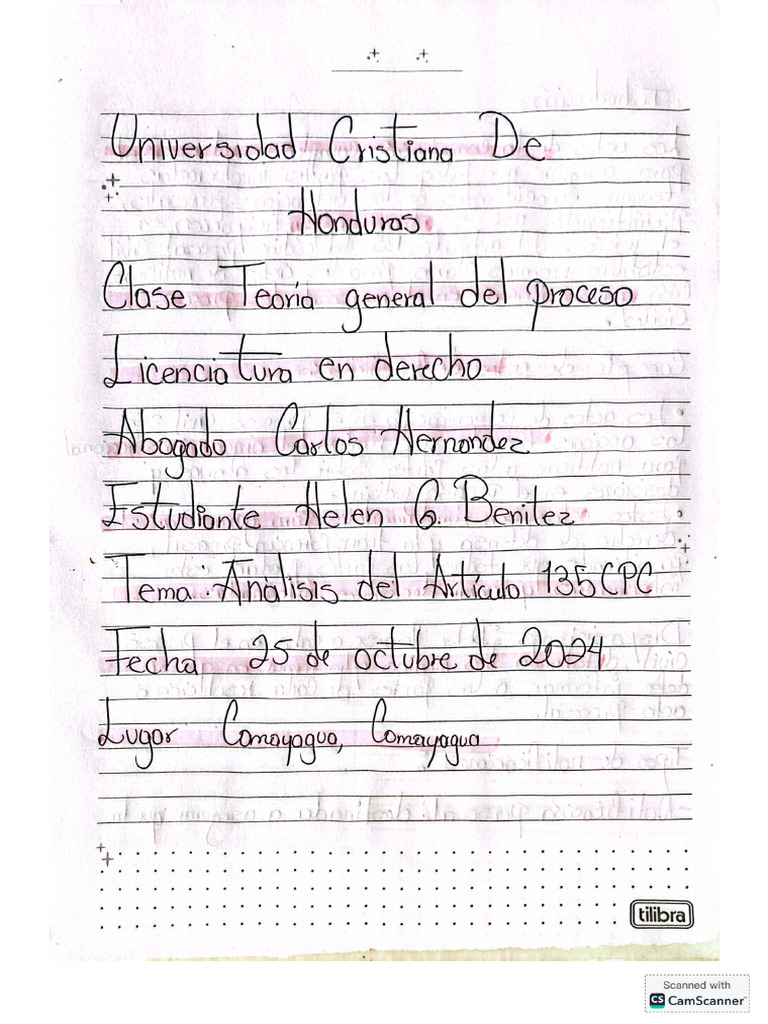 Universidad Cristiana De
Honduras
Clase Teoría general del proceso
Licenciatura en derecho
Abogado Carlos Hernandez
Estudiante Helen G. Benitez
Tema: Análisis del Artículo 135 CPC
Fecha 25 de octubre de 2024
Lugar Comayagua, Comayagua
tilibra
Scanned with
CS CamScanner